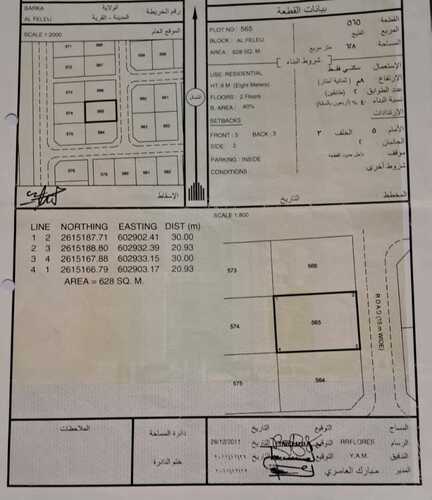 BARKA
الولاية
رقم الخريطة
AL FELEIJ
المدينة - القرية
SCALE 1:2000
الموقع العام
بيانات القطعة
PLOT NO : 565
٥٦٥
القطعة
BLOCK : AL FELEIJ
الفليج
المربع
AREA : 628 SQ. M.
٦٢٨ متر مربع
المساحة
شروط البناء
USE: RESIDENTIAL
سكني فقط
الإستعمال
HT.:8 M (Eight Meters)
٨م (ثمانية أمتار)
الإرتفاع
FLOORS : 2 Floors
٢ (طابقين)
عدد الطوابق
B. AREA : 40%
٤٠٪ (أربعون بالمائة)
نسبة البناء
SETBACKS
الإرتدادات
FRONT : 5 BACK : 3
الأمام ٥ الخلف ٣
SIDE : 2
الجانبان ٢
PARKING : INSIDE
موقف داخل حدود القطعة
CONDITIONS :
شروط أخرى
المخطط
التاريخ
الإسقاط
شمال
SCALE 1:800
LINE NORTHING EASTING DIST (m)
1 2 2615187.71 602902.41 30.00
2 3 2615188.80 602932.39 20.93
3 4 2615167.88 602933.15 30.00
4 1 2615166.79 602903.17 20.93
AREA = 628 SQ. M.
573
566
574
565
575
564
ROAD (18 m WIDE)
الملاحظات
دائرة المساحة
ختم الدائرة
التاريخ
التوقيع
المساح
26/12/2011
التوقيع
RRFLORES
الرسام
التوقيع
Y.A.M.
التدقيق
٢٠١١/١٢/٢٦
مبارك العاصري
المدير